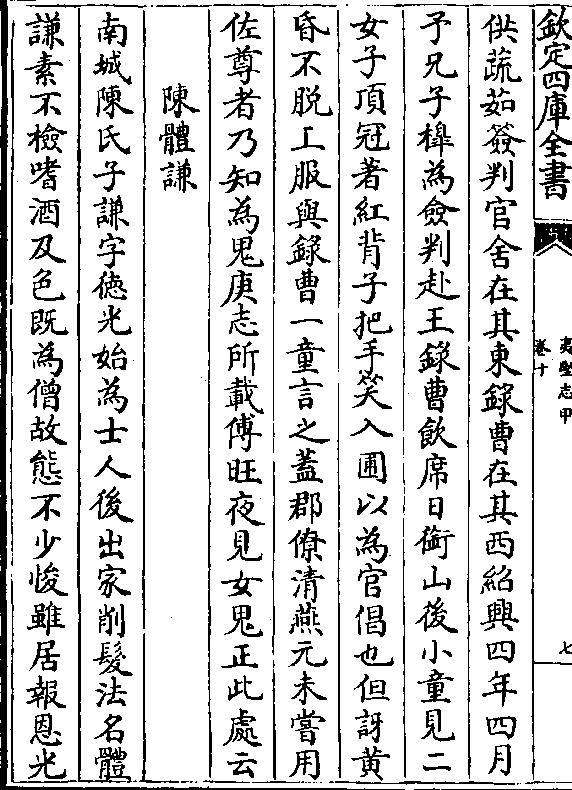 欽定四庫全書
夷堅志甲
卷十
七
供蔬茹簽判官舍在其東錄曹在其西紹興四年四月
予兄子㮚為僉判赴王錄曹飲席日銜山後小童見二
女子項冠著紅背子把手笑入圃以為官倡也但訝黃
昏不脫上服與錄曹一童言之蓋郡僚清燕元未嘗用
佐尊者乃知為鬼庚志所載傅旺夜見女鬼正此處云
陳體謙
南城陳氏子謙字徳光始為士人後出家削髮法名體
謙素不檢嗜酒及色既為僧故態不少悛雖居報恩光